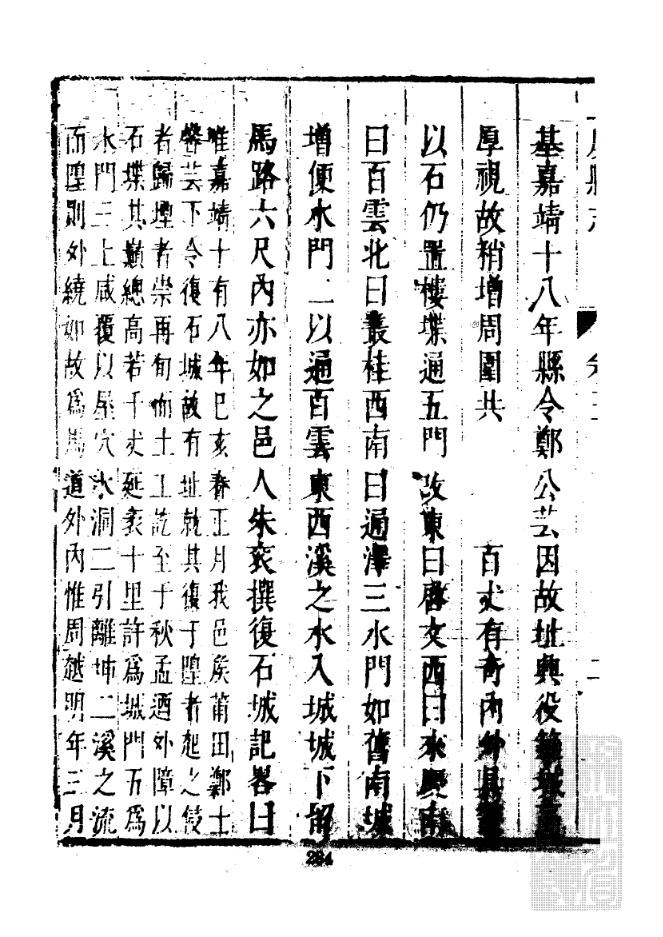 縣志
卷三
基嘉靖十八年縣令鄭公芸因故址興役築城
厚視故稍增周圍共 百丈有奇內外具
以石仍置樓堞通五門改東曰啓文西曰來慶南
曰百雲北曰叢桂西南曰通澤三水門如舊南城
增便水門二以通百雲東西溪之水入城城下留
馬路六尺內亦如之邑人朱袞撰復石城記畧曰
唯嘉靖十有八年巳亥春正月我邑矦莆田鄭士
馨芸下令復石城故有址就其復于隍者起之徵
者歸堙者崇再旬而土工訖至于秋孟廼外障以
石堞其巔總高若干丈延袤十里許爲城門五爲
水門三上咸覆以屋穴水洞二引離坤二溪之流
而隍則外繞如故爲馬道外內惟周越明年三月
284